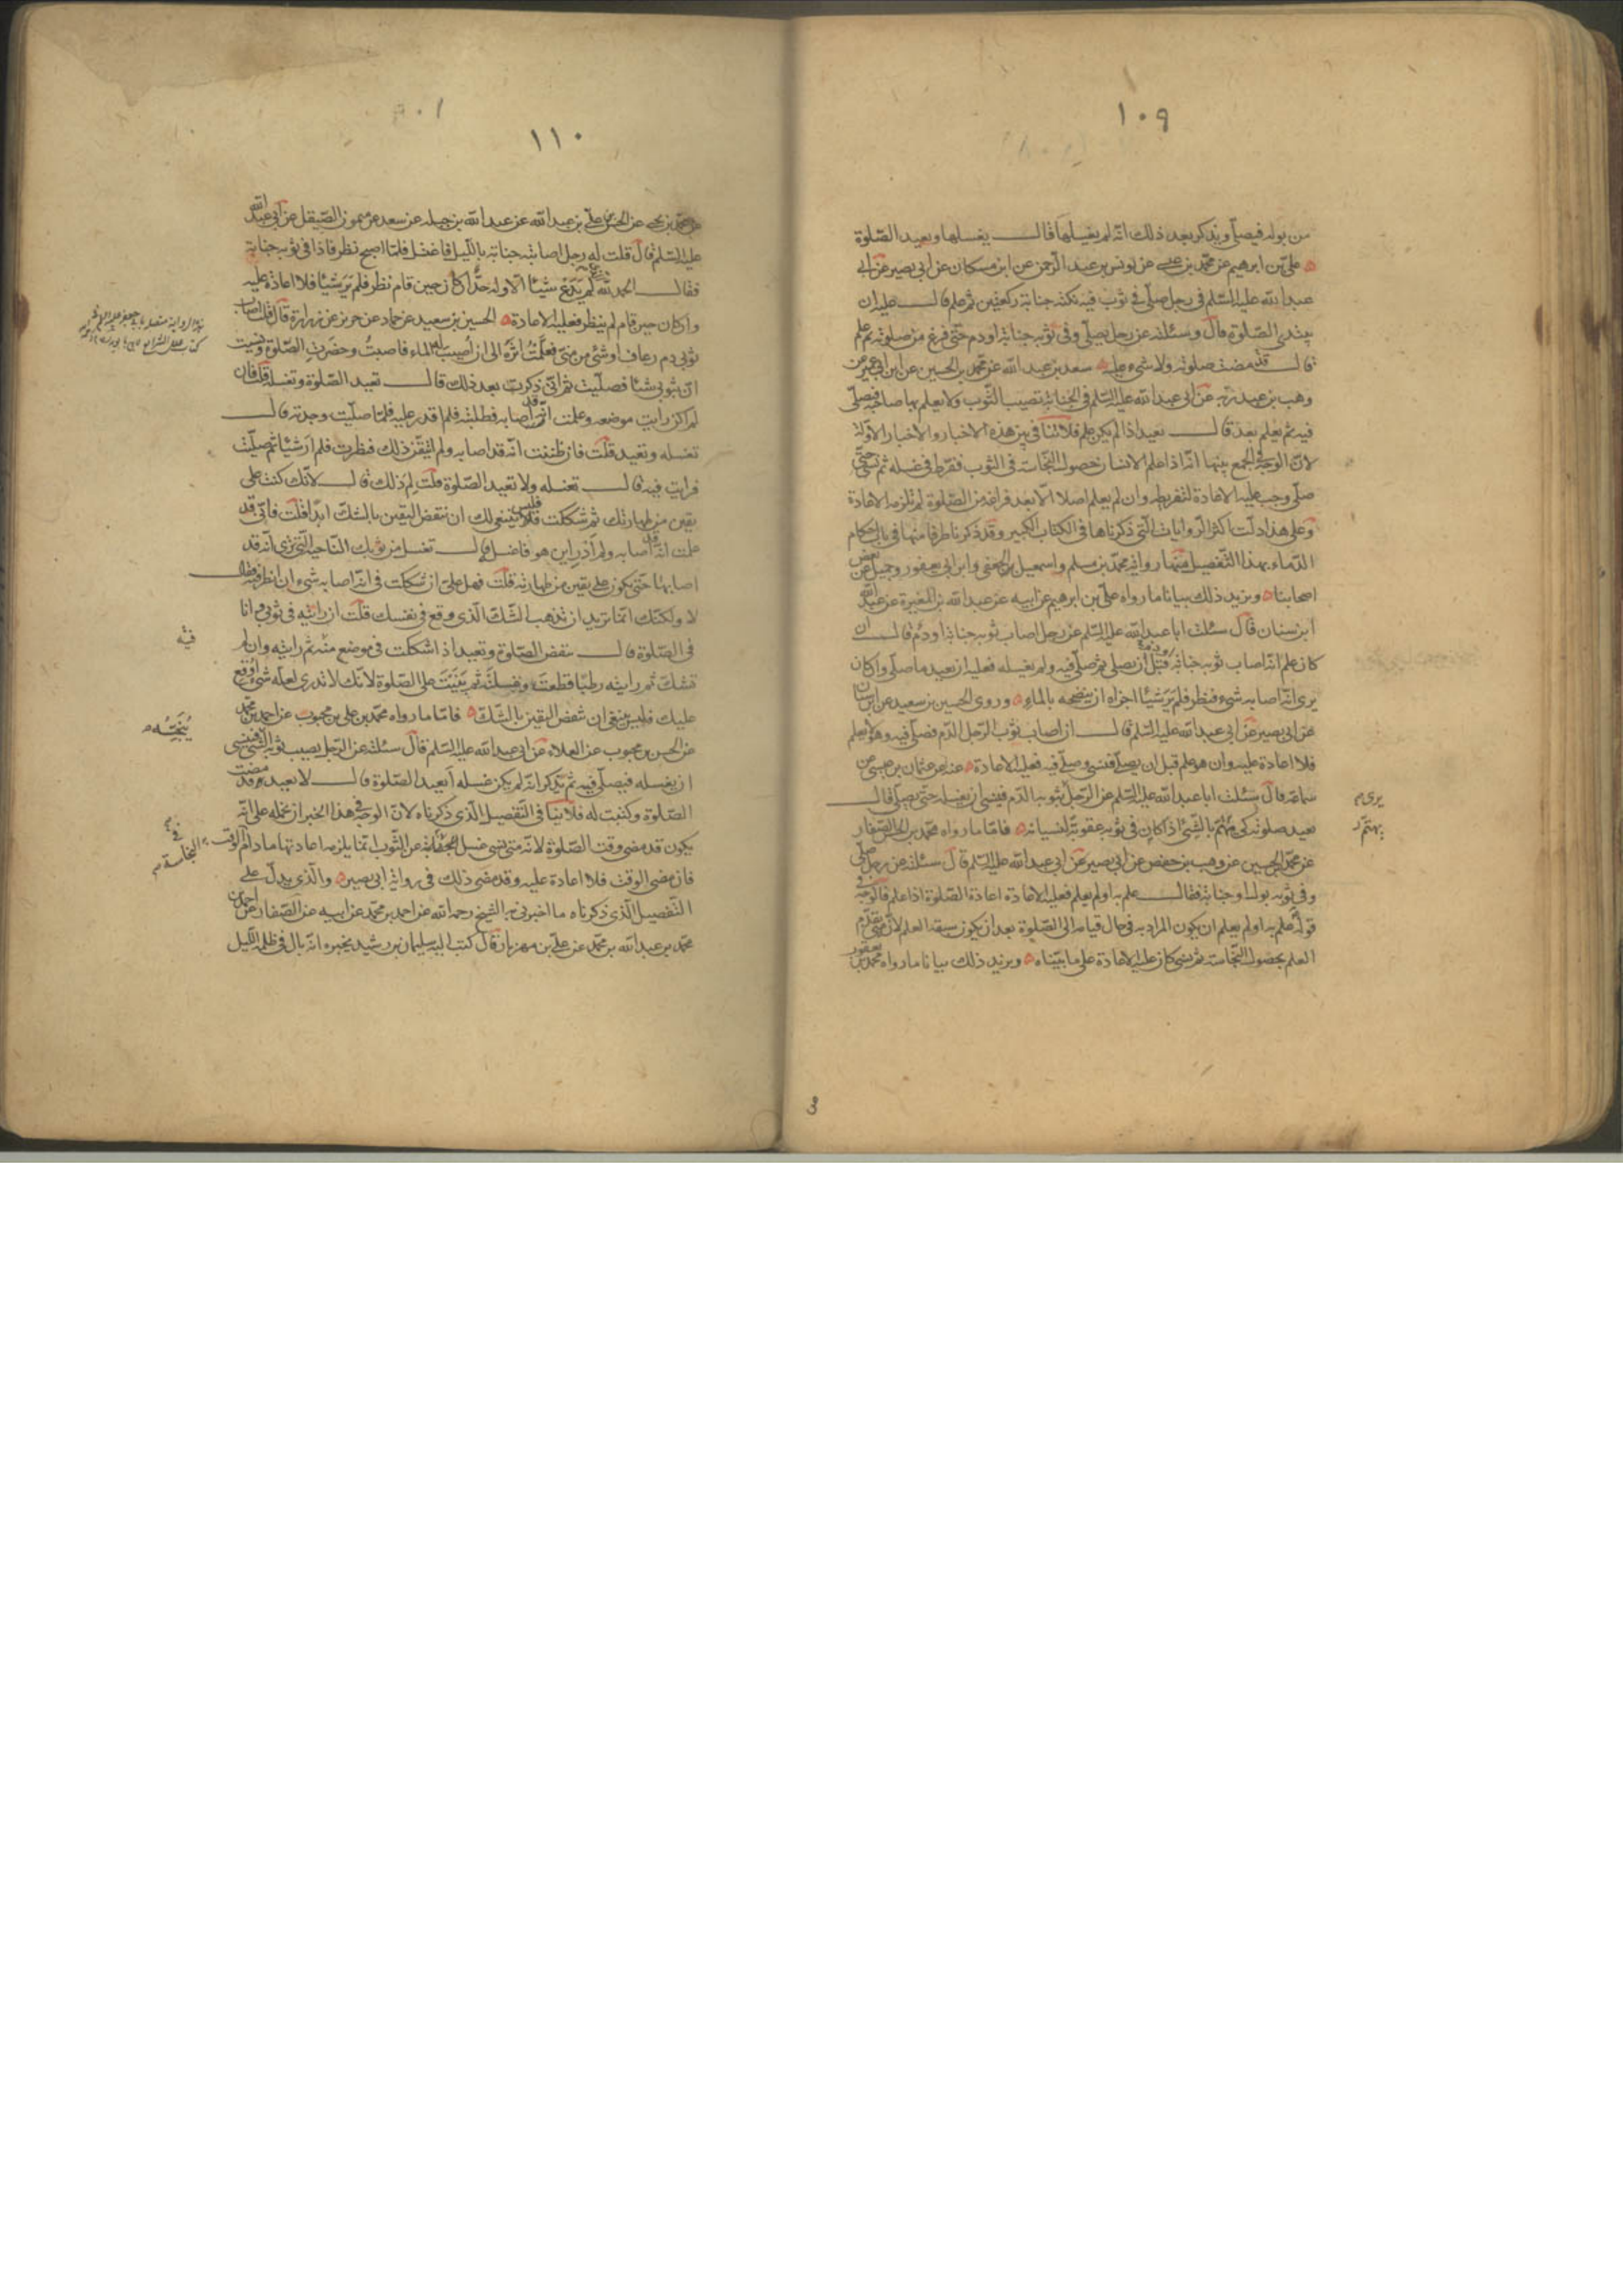 ١٠٩
من بوله فيصلّي ويذكر بعد ذلك انّه لم يغسلها قال يغسلها ويعيد الصّلوة
علي بن ابرهيم عن محمّد بن عيسى عن يونس بن عبد الرّحمن عن ابن مسكان عن ابي بصير عن ابي
عبد الله عليه السّلم في رجل صلّى في ثوب فيه نكتة جنابة ركعتين ثم علم قال عليه ان
يبتدئ الصّلوة قال وسئلته عن رجل يصلّي وفي ثوبه جنابة او دم حتّى فرغ من صلوته ثم علم
قال قد مضت صلوته ولا شيء عليه سعد بن عبد الله عن محمّد بن الحسين عن ابن ابي عمير عن
وهب بن عبد ربّه عن ابي عبد الله عليه السّلم في الجنابة تصيب الثّوب ولا يعلم بها صاحبه فيصلّي
فيه ثم يعلم بعد قال يعيد اذا لم يكن علم فلا تنافي بين هذه الاخبار والاخبار الاوّلة
لانّ الوجه في الجمع بينها انّه اذا علم الانسان حصول النّجاسة في الثوب ففرّط في غسله ثم نسي حتّى
صلّى وجب عليه الاعادة لتفريطه وان لم يعلم اصلا الّا بعد فراغه من الصّلوة لم تلزمه الاعادة
وعلى هذا دلّت اكثر الرّوايات الّتي ذكرناها في الكتاب الكبير وقد ذكرنا طرفا منها في باب احكام
الدّماء بهذا التّفصيل منها رواية محمّد بن مسلم واسمعيل الجعفي وابن ابي يعفور وجميل عن بعض
اصحابنا ويزيد ذلك بيانا ما رواه علي بن ابرهيم عن ابيه عن عبد الله بن المغيرة عن عبد الله
ابن سنان قال سئلت ابا عبد الله عليه السّلم عن رجل اصاب ثوبه جنابة او دم قال ان
كان علم انّه اصاب ثوبه جنابة قبل ان يصلّي ثم صلّى فيه ولم يغسله فعليه ان يعيد ما صلّى وان كان
يرى انّه اصابه شيء فنظر فلم ير شيئا اجزاه ان ينضحه بالماء وروى الحسين بن سعيد عن ابن سنان
عن ابي بصير عن ابي عبد الله عليه السّلم قال ان اصاب ثوب الرّجل الدّم فصلّى فيه وهو لا يعلم
فلا اعادة عليه وان هو علم قبل ان يصلّي فنسي وصلّى فيه فعليه الاعادة عنه عن عثمان بن عيسى عن
سماعة قال سئلت ابا عبد الله عليه السّلم عن الرّجل بثوبه الدّم فينسى ان يغسله حتّى يصلّي قال
يعيد صلوته كي يهتمّ بالشّيء اذا كان في ثوبه عقوبة لنسيانه فامّا ما رواه محمّد بن الحسن الصّفار
عن محمّد بن الحسين عن وهيب بن حفص عن ابي بصير عن ابي عبد الله عليه السّلم قال سئلته عن رجل صلّى
وفي ثوبه بول او جنابة فقال علم به او لم يعلم فعليه الاعادة اعادة الصّلوة اذا علم فالوجه في
قوله علم به او لم يعلم ان يكون المراد به في حال قيامه الى الصّلوة بعد ان يكون سبقه العلم لانّ متى تقدّم
العلم بحصول النّجاسة ثم نسي كان عليه الاعادة على ما بيّناه ويزيد ذلك بيانا ما رواه محمد بن يعقوب
يرى م
يهتم
١١٠
عن محمّد بن يحيى عن الحسن بن علي بن عبد الله عن عبد الله بن جبلة عن سعد عن ميمون الصّيقل عن ابي عبد الله
عليه السّلم قال قلت له رجل اصابته جنابة بالليل فاغتسل فلمّا اصبح نظر فاذا في ثوبه جنابة
فقال الحمد لله لم يدع شيئا الّا وله حدّ ان كان حين قام نظر فلم ير شيئا فلا اعادة عليه
وان كان حين قام لم ينظر فعليه الاعادة الحسين بن سعيد عن حماد عن حريز عن زرارة قال قلت اصاب
ثوبي دم رعاف او شيء من منيّ فعلّمت اثره الى ان اصيب له الماء فاصبت وحضرت الصّلوة ونسيت
انّ بثوبي شيئا فصلّيت ثم انّي ذكرت بعد ذلك قال تعيد الصّلوة وتغسله قلت فان
لم اكن رايت موضعه وعلمت انّه قد اصابه فطلبته فلم اقدر عليه فلمّا صلّيت وجدته قال
تغسله وتعيد قلت فان ظننت انّه قد اصابه ولم اتيقّن ذلك فنظرت فلم ار شيئا ثم صلّيت
فرايت فيه قال تغسله ولا تعيد الصّلوة قلت لم ذلك قال لانّك كنت على
يقين من طهارتك ثم شككت فليس ينبغي لك ان تنقض اليقين بالشكّ ابدا قلت فانّي قد
علمت انّه قد اصابه ولم ادر اين هو فاغسله قال تغسل من ثوبك النّاحية الّتي ترى انّه قد
اصابها حتّى يكون على يقين من طهارته قلت فهل عليّ ان شككت في انّه اصابه شيء ان انظر فيه فقال
لا ولكنّك انّما تريد ان تذهب الشّكّ الّذي وقع في نفسك قلت ان رايته في ثوبي وانا
في الصّلوة قال تنقض الصّلوة وتعيد اذا شككت في موضع منه ثم رايته وان لم
تشكّ ثم رايته رطبا قطعت وغسلته ثم بنيت على الصّلوة لانّك لا تدري لعلّه شيء اوقع
عليك فليس ينبغي ان تنقض اليقين بالشّكّ فامّا ما رواه محمّد بن علي بن محبوب عن احمد بن محمّد
عن الحسن بن محبوب عن العلاء عن ابي عبد الله عليه السّلم قال سئلته عن الرّجل يصيب ثوبه الشّيء فينسى
ان يغسله فيصلّي فيه ثم يتذكّر انّه لم يكن غسله ايعيد الصّلوة قال لا يعيد وقد مضت
الصّلوة وكتبت له فلا ينافي التّفصيل الّذي ذكرناه لانّ الوجه في هذا الخبر ان نحمله على انّه
يكون قد مضى وقت الصّلوة لانّه متى نسي غسل النجاسة عن الثّوب انّما يلزمه اعادتها ما دام في الوقت
فان مضى الوقت فلا اعادة عليه وقد مضى ذلك في رواية ابي بصير والّذي يدلّ على
التّفصيل الّذي ذكرناه ما اخبرني به الشّيخ رحمه الله عن احمد بن محمّد عن ابيه عن الصّفار عن احمد بن
محمّد بن عبد الله بن محمّد عن علي بن مهزيار قال كتب اليه سليمان بن رشيد يخبره انّه بال في ظلمة اللّيل
فيه
النجاسة م